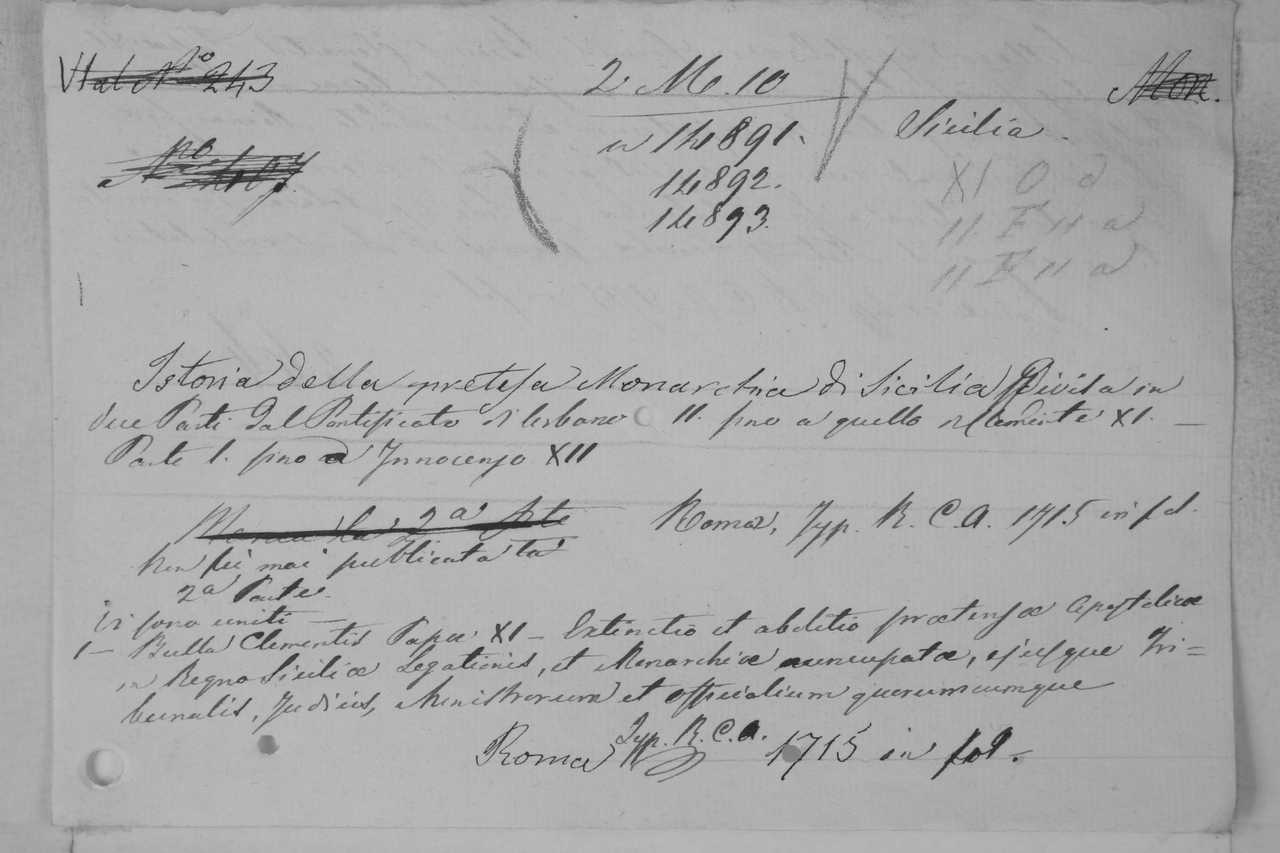 Ital Nº 243
2 M. 10
Mon.
Sicilia.
n 14891.
14892.
14893.
XI O d
11 E 11 a
11 E 11 a
Istoria della pretesa Monarchia di Sicilia Divisa in
due Parti dal Pontificato di Urbano II. fino a quello di Clemente XI. —
Parte I. fino ad Innocenzo XII
Manca la 2a Pte
Roma, Typ. R. C. A. 1715 in fol.
Non fu mai publicata la
2a Parte.
Vi sono uniti —
1 — Bulla Clementis Papæ XI — Extinctio et abolitio prætensæ Apostolicæ
in Regno Siciliæ Legationis, et Monarchiæ nuncupatæ, ejusque Tri=
bunalis, Judicis, Ministrorum et officialium quorumcumque
Typ. R. C. A.
Roma 1715 in fol.